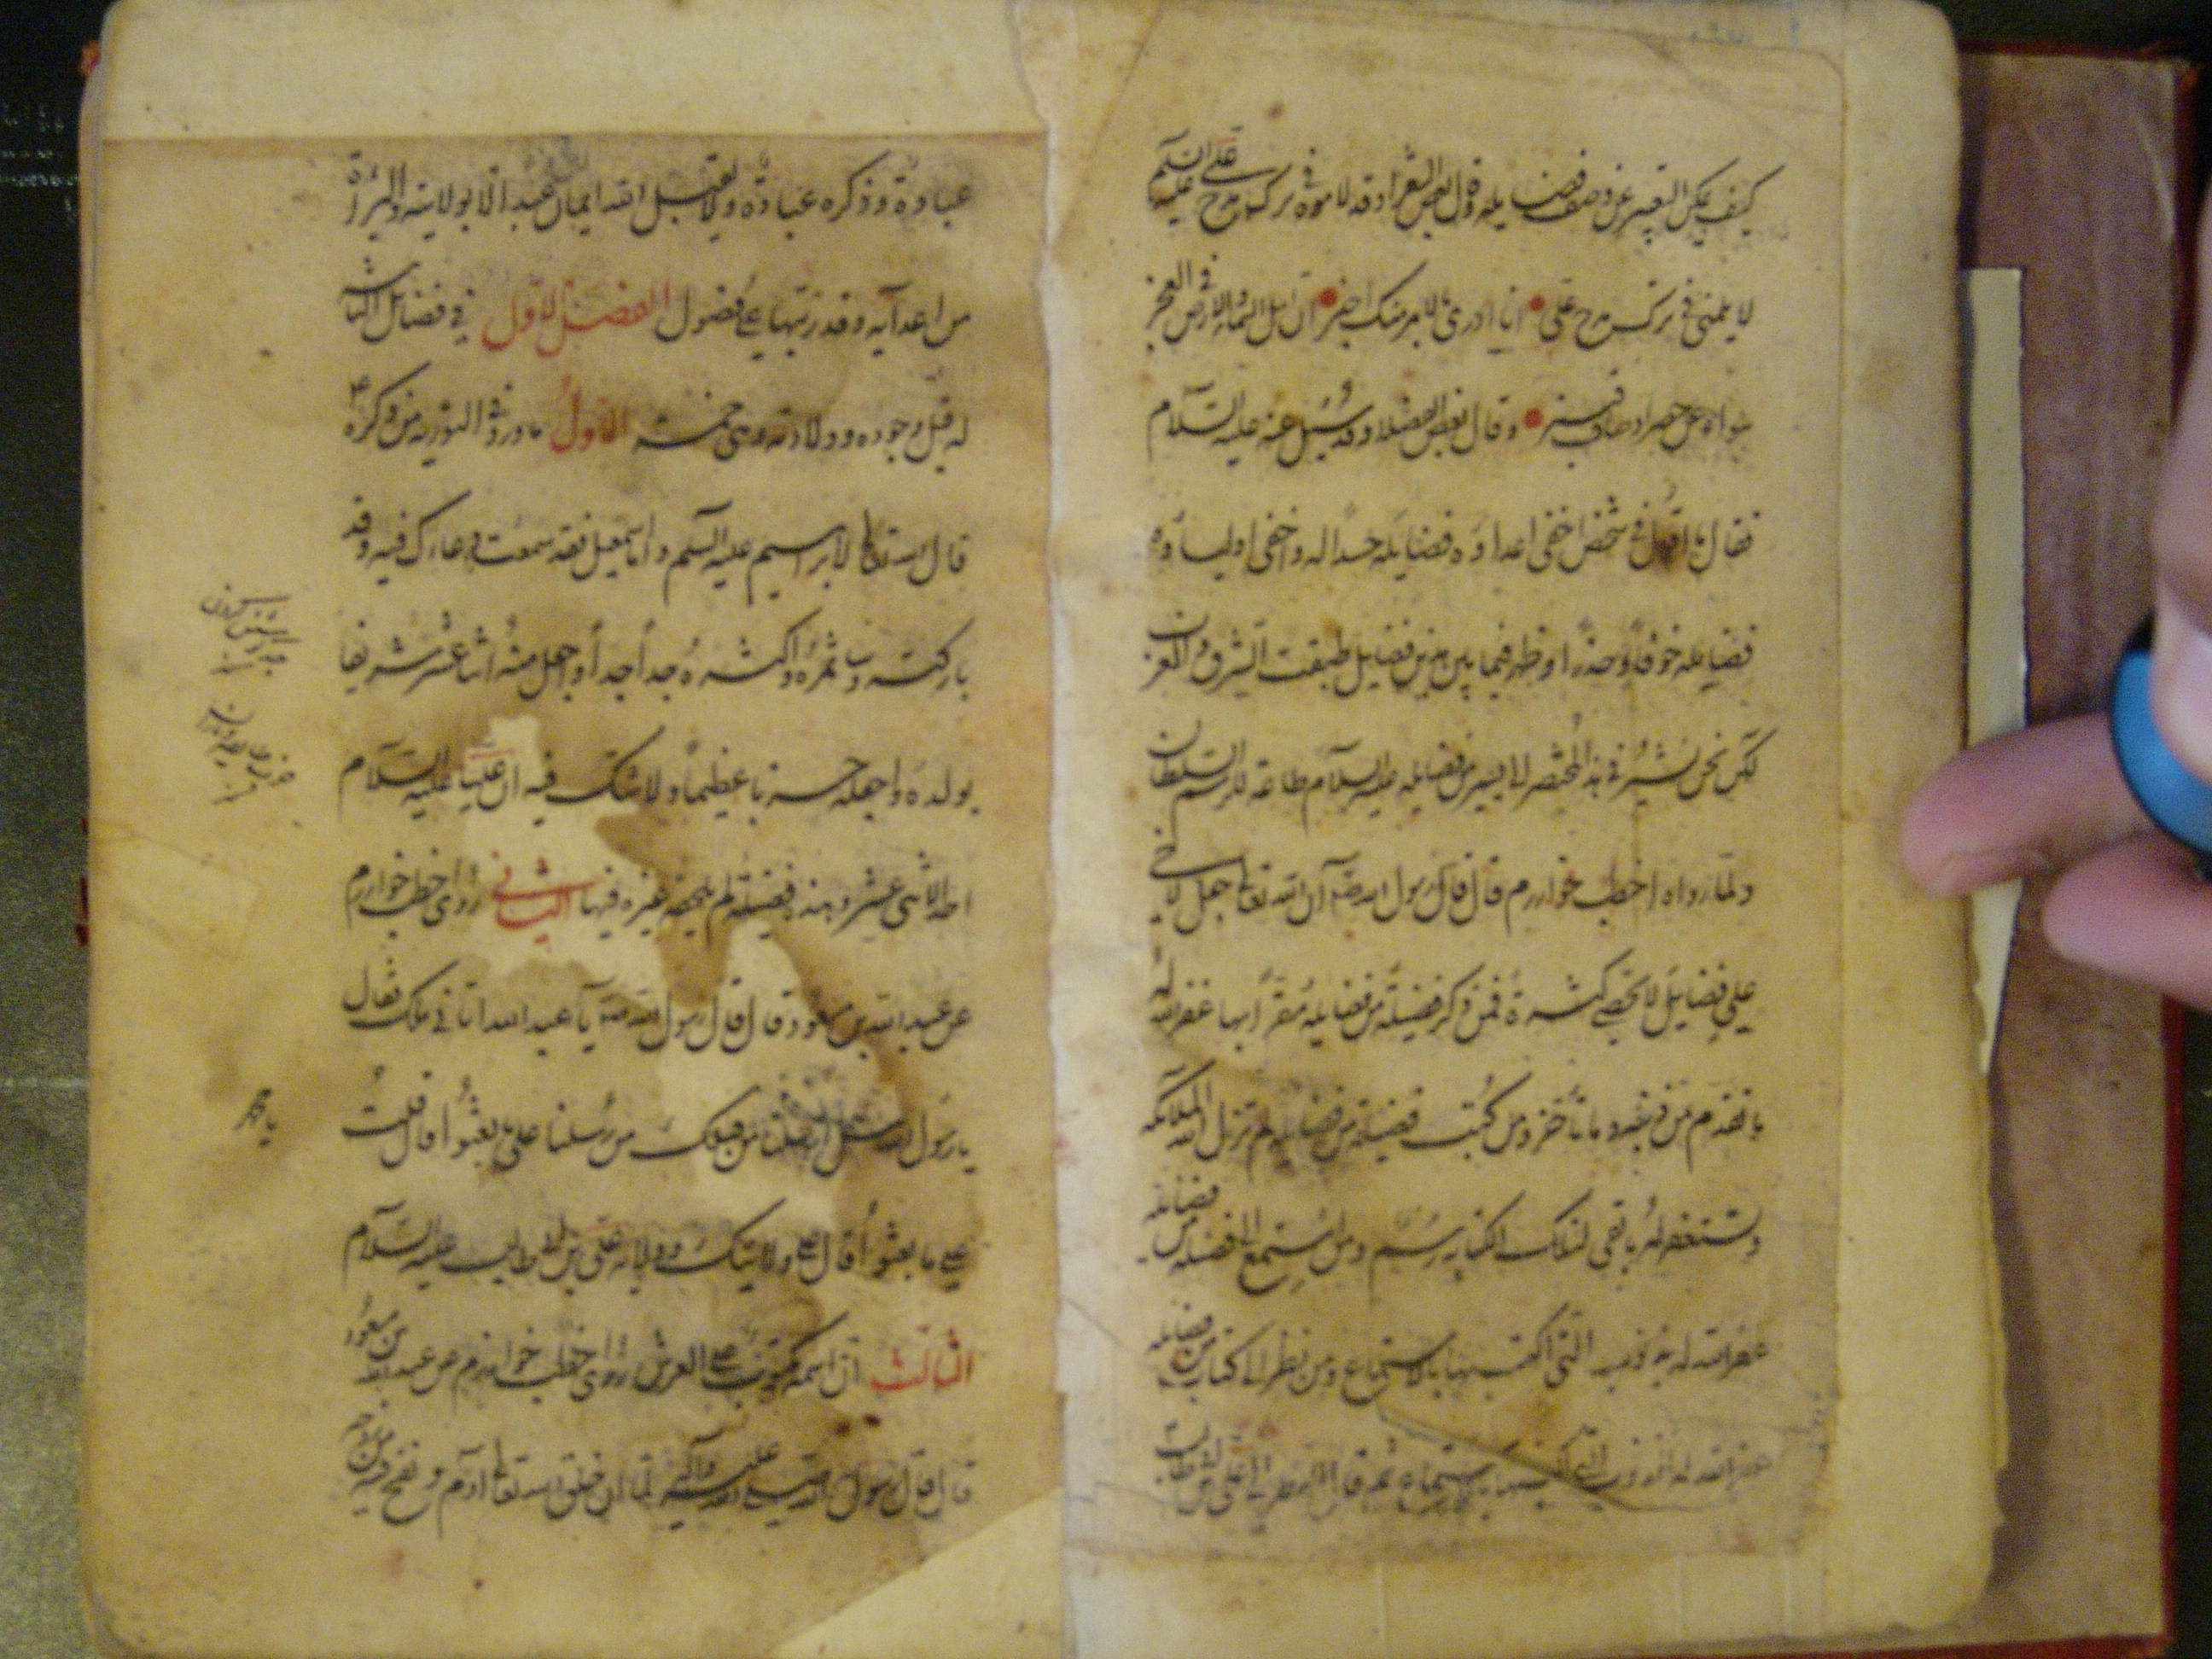 كيف يمكن التعبير عن وصف فضايله قال بعض الشعراء وقد لاموه في ترك مدح علي عليه السلم
لا يلمني في ترك مدح علي انا ادري بالامر منك اخبر ان اهل السماء والارض في العجز
سواء عن حصر اوصاف قنبر وقال بعض الفضلاء وقد سئل عنه عليه السلام
فقال ما اقول في شخص اخفى اعداؤه فضايله حسدا له واخفى اولياؤه
فضايله خوفا وحذرا وظهر فيما بين هذين فضايل طبقت الشرق والغرب
لكن نحن نشير في هذا المختصر الى يسير من فضايله عليه السلام طاعة لرسم السلطان
ولما رواه اخطب خوارزم قال قال رسول الله ان الله تعالى جعل لاخي
علي فضايل لا تحصى كثرة فمن ذكر فضيلة من فضايله مقرا بها غفر الله له
ما تقدم من ذنبه وما تأخر ومن كتب فضيلة من فضايله لم تزل الملائكة
تستغفر له ما بقي لتلك الكتابة رسم ومن استمع الى فضيلة من فضايله
غفر الله له الذنوب التي اكتسبها بالاستماع ومن نظر الى كتاب من فضايله
غفر الله له الذنوب التي اكتسبها ثم قال النظر الى علي بن ابي طالب
عبادة وذكره عبادة ولا يقبل الله ايمان عبد الا بولايته والبراءة
من اعدائه وقد رتبتها على فصول الفصل الاول في فضائل الثابتة
له قبل وجوده وولادته وهي خمسة الاول ما ورد في التورية من ذكره
قال الله تعالى لابراهيم عليه السلم واما اسمعيل فقد سمعت دعاءك فيه وقد
باركته وساثمره واكثره جدا جدا واجعل منه اثنا عشر شريفا
يولده واجعله حزبا عظيما ولا شك فيه ان عليا عليه السلام
احد الاثني عشر وهذه فضيلة لم يلحقه غيره فيها الثاني روى اخطب خوارزم
عن عبد الله بن مسعود قال قال رسول الله يا عبد الله اتاني ملك فقال
يا رسول الله سل من ارسلنا من قبلك من رسلنا على ما بعثوا قال قلت
على ما بعثوا قال على ولايتك وولاية علي بن ابي طالب عليه السلام
الثالث ان اسمه مكتوب على العرش روى اخطب خوارزم عن عبد الله بن مسعود
قال قال رسول الله صلى الله عليه وآله لما ان خلق الله تعالى ادم ونفخ فيه من روحه
يا محمد